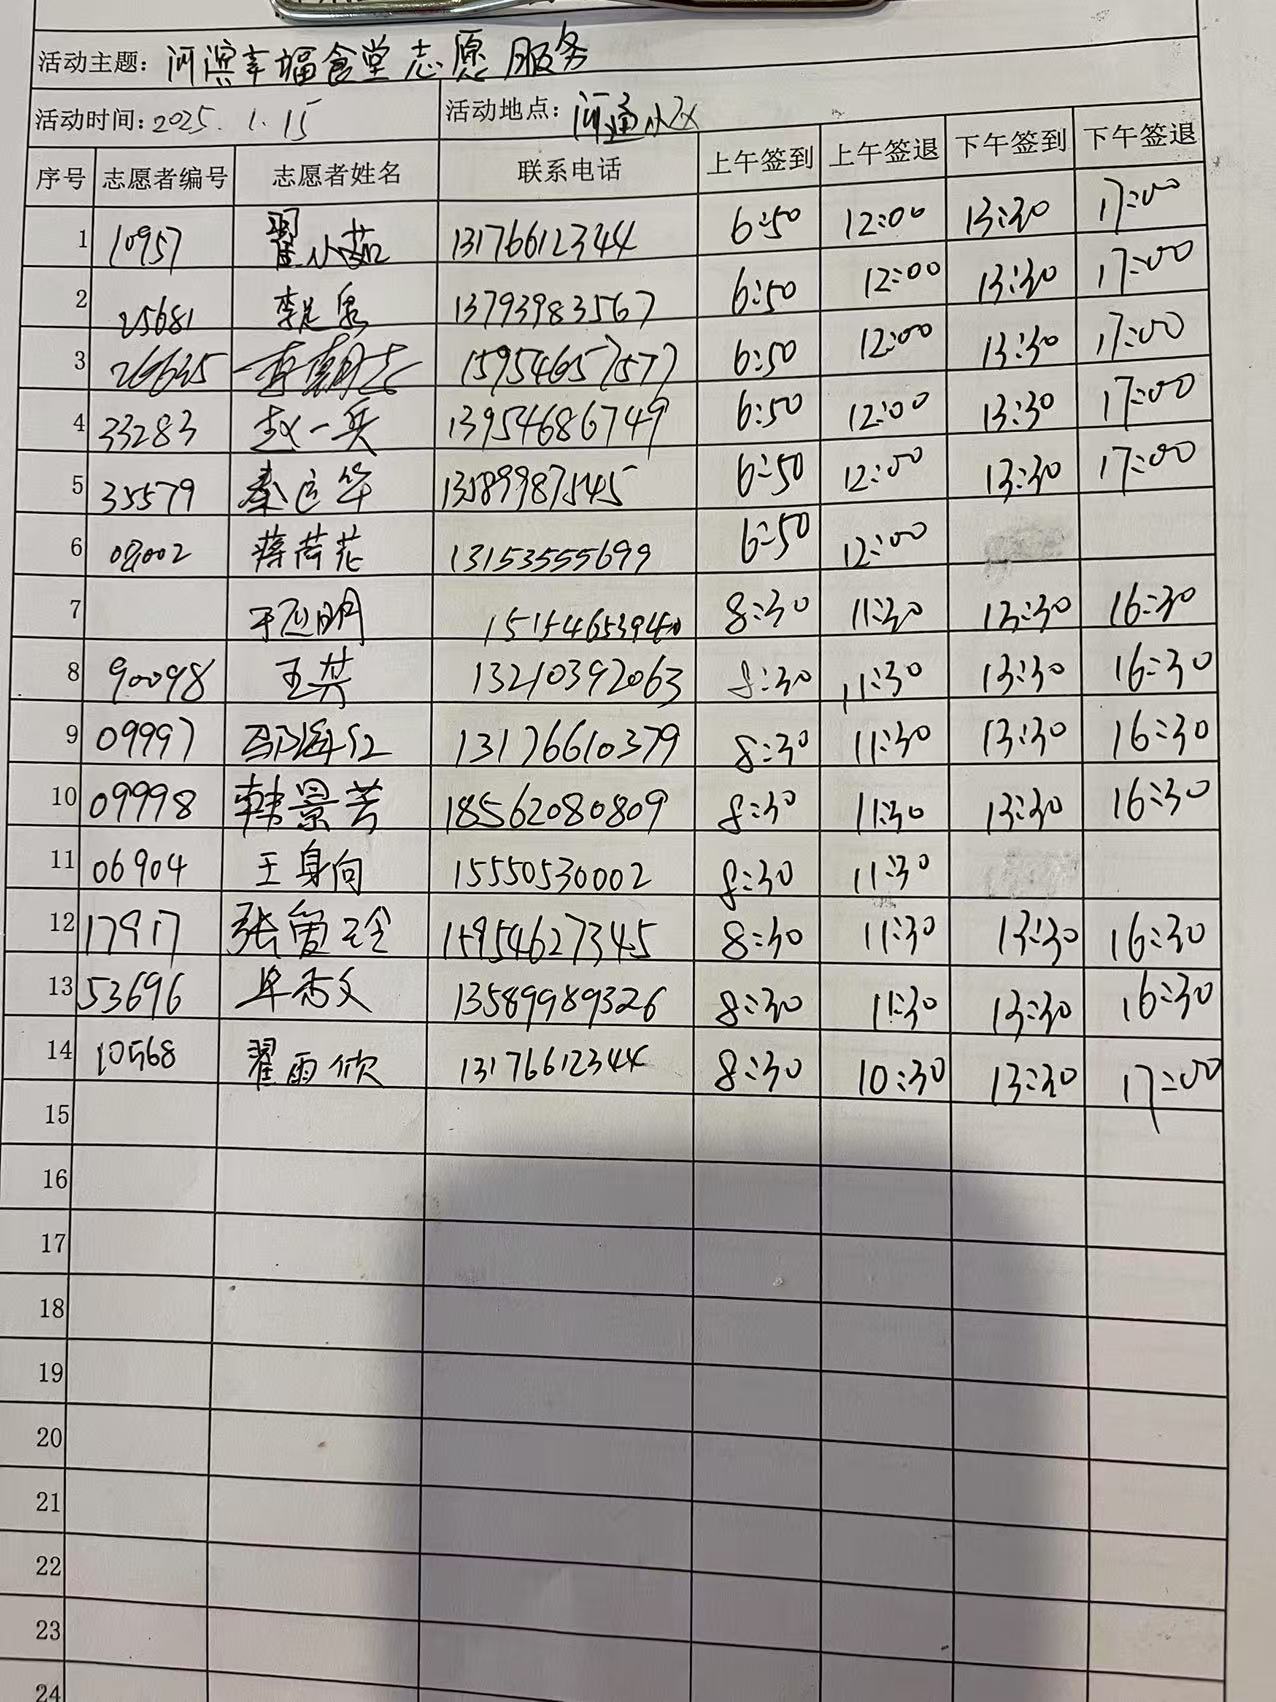 活动主题：河滨幸福食堂志愿服务
活动时间：2025.1.15 活动地点：河通小区
序号 志愿者编号 志愿者姓名 联系电话 上午签到 上午签退 下午签到 下午签退
1 10957 翟小茹 13176612344 6:50 12:00 13:30 17:00
2 25681 13793983567 6:50 12:00 13:30 17:00
3 26635 15954657577 6:50 12:00 13:30 17:00
4 33283 赵一兵 13954686749 6:50 12:00 13:30 17:00
5 35579 秦运华 13589987545 6:50 12:00 13:30 17:00
6 08002 蒋荷花 13153555699 6:50 12:00
7 于应明 8:30 11:30 13:30 16:30
8 90098 王芬 13210392063 8:30 11:30 13:30 16:30
9 09997 邵海红 13176610379 8:30 11:30 13:30 16:30
10 09998 韩景芳 18562080809 8:30 11:30 13:30 16:30
11 06904 王身向 15550530002 8:30 11:30
12 17917 张爱玲 15954627345 8:30 11:30 13:30 16:30
13 53696 牟秀文 13589989326 8:30 11:30 13:30 16:30
14 10568 翟雨欣 13176612344 8:30 10:30 13:30 17:00
15
16
17
18
19
20
21
22
23
24